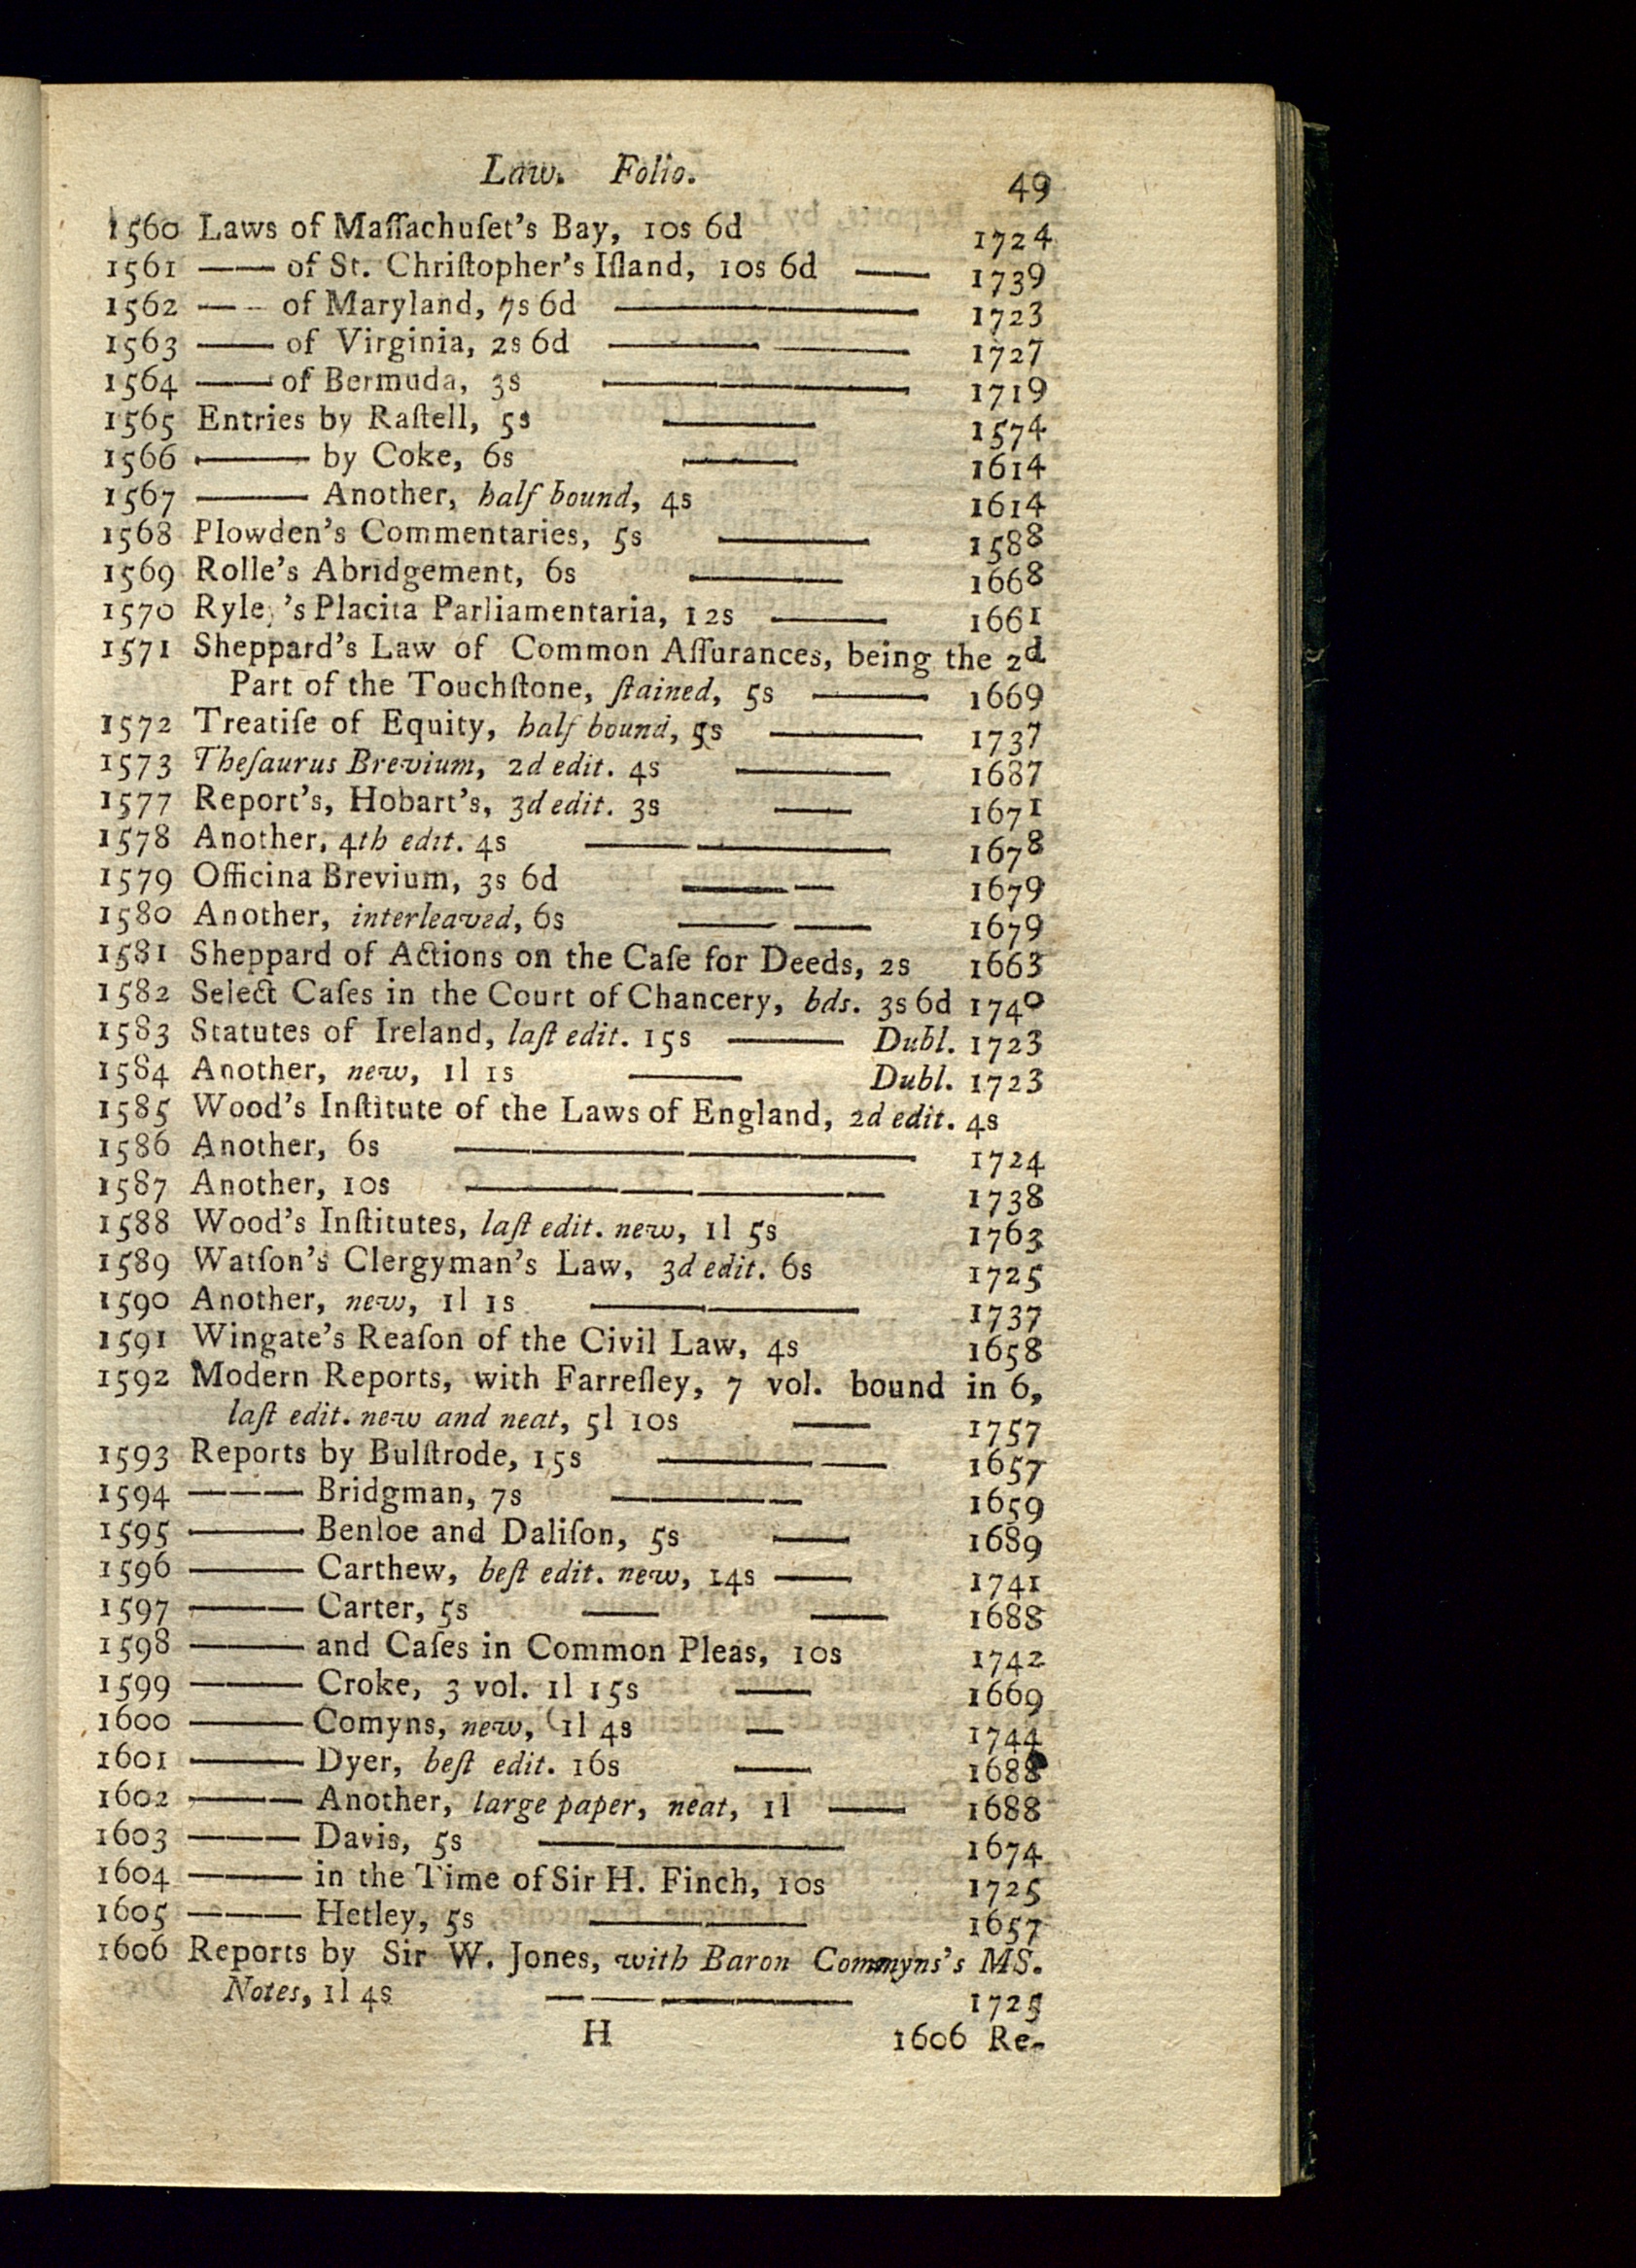 Law. Folio. 49
1560 Laws of Maſſachuſet's Bay, 10s 6d 1724
1561 —— of St. Chriſtopher's Iſland, 10s 6d —— 1739
1562 —— of Maryland, 7s 6d —— 1723
1563 —— of Virginia, 2s 6d —— 1727
1564 —— of Bermuda, 3s —— 1719
1565 Entries by Raſtell, 5s —— 1574
1566 —— by Coke, 6s —— 1614
1567 —— Another, half bound, 4s 1614
1568 Plowden's Commentaries, 5s —— 1588
1569 Rolle's Abridgement, 6s —— 1668
1570 Ryley's Placita Parliamentaria, 12s —— 1661
1571 Sheppard's Law of Common Aſſurances, being the 2d
Part of the Touchſtone, ſtained, 5s —— 1669
1572 Treatiſe of Equity, half bound, 5s —— 1737
1573 Theſaurus Brevium, 2d edit. 4s —— 1687
1577 Report's, Hobart's, 3d edit. 3s —— 1671
1578 Another, 4th edit. 4s —— 1678
1579 Officina Brevium, 3s 6d —— 1679
1580 Another, interleaved, 6s —— 1679
1581 Sheppard of Actions on the Caſe for Deeds, 2s 1663
1582 Select Caſes in the Court of Chancery, bds. 3s 6d 1740
1583 Statutes of Ireland, laſt edit. 15s —— Dubl. 1723
1584 Another, new, 1l 1s —— Dubl. 1723
1585 Wood's Inſtitute of the Laws of England, 2d edit. 4s
1586 Another, 6s —— 1724
1587 Another, 10s —— 1738
1588 Wood's Inſtitutes, laſt edit. new, 1l 5s 1763
1589 Watſon's Clergyman's Law, 3d edit. 6s 1725
1590 Another, new, 1l 1s —— 1737
1591 Wingate's Reaſon of the Civil Law, 4s 1658
1592 Modern Reports, with Farreſley, 7 vol. bound in 6,
laſt edit. new and neat, 5l 10s —— 1757
1593 Reports by Bulſtrode, 15s —— 1657
1594 —— Bridgman, 7s —— 1659
1595 —— Benloe and Daliſon, 5s —— 1689
1596 —— Carthew, beſt edit. new, 14s —— 1741
1597 —— Carter, 5s —— 1688
1598 —— and Caſes in Common Pleas, 10s 1742
1599 —— Croke, 3 vol. 1l 15s —— 1669
1600 —— Comyns, new, 1l 4s —— 1744
1601 —— Dyer, beſt edit. 16s —— 1688
1602 —— Another, large paper, neat, 1l —— 1688
1603 —— Davis, 5s —— 1674
1604 —— in the Time of Sir H. Finch, 10s 1725
1605 —— Hetley, 5s —— 1657
1606 Reports by Sir W. Jones, with Baron Commyns's MS.
Notes, 1l 4s —— 1725
H 1606 Re-